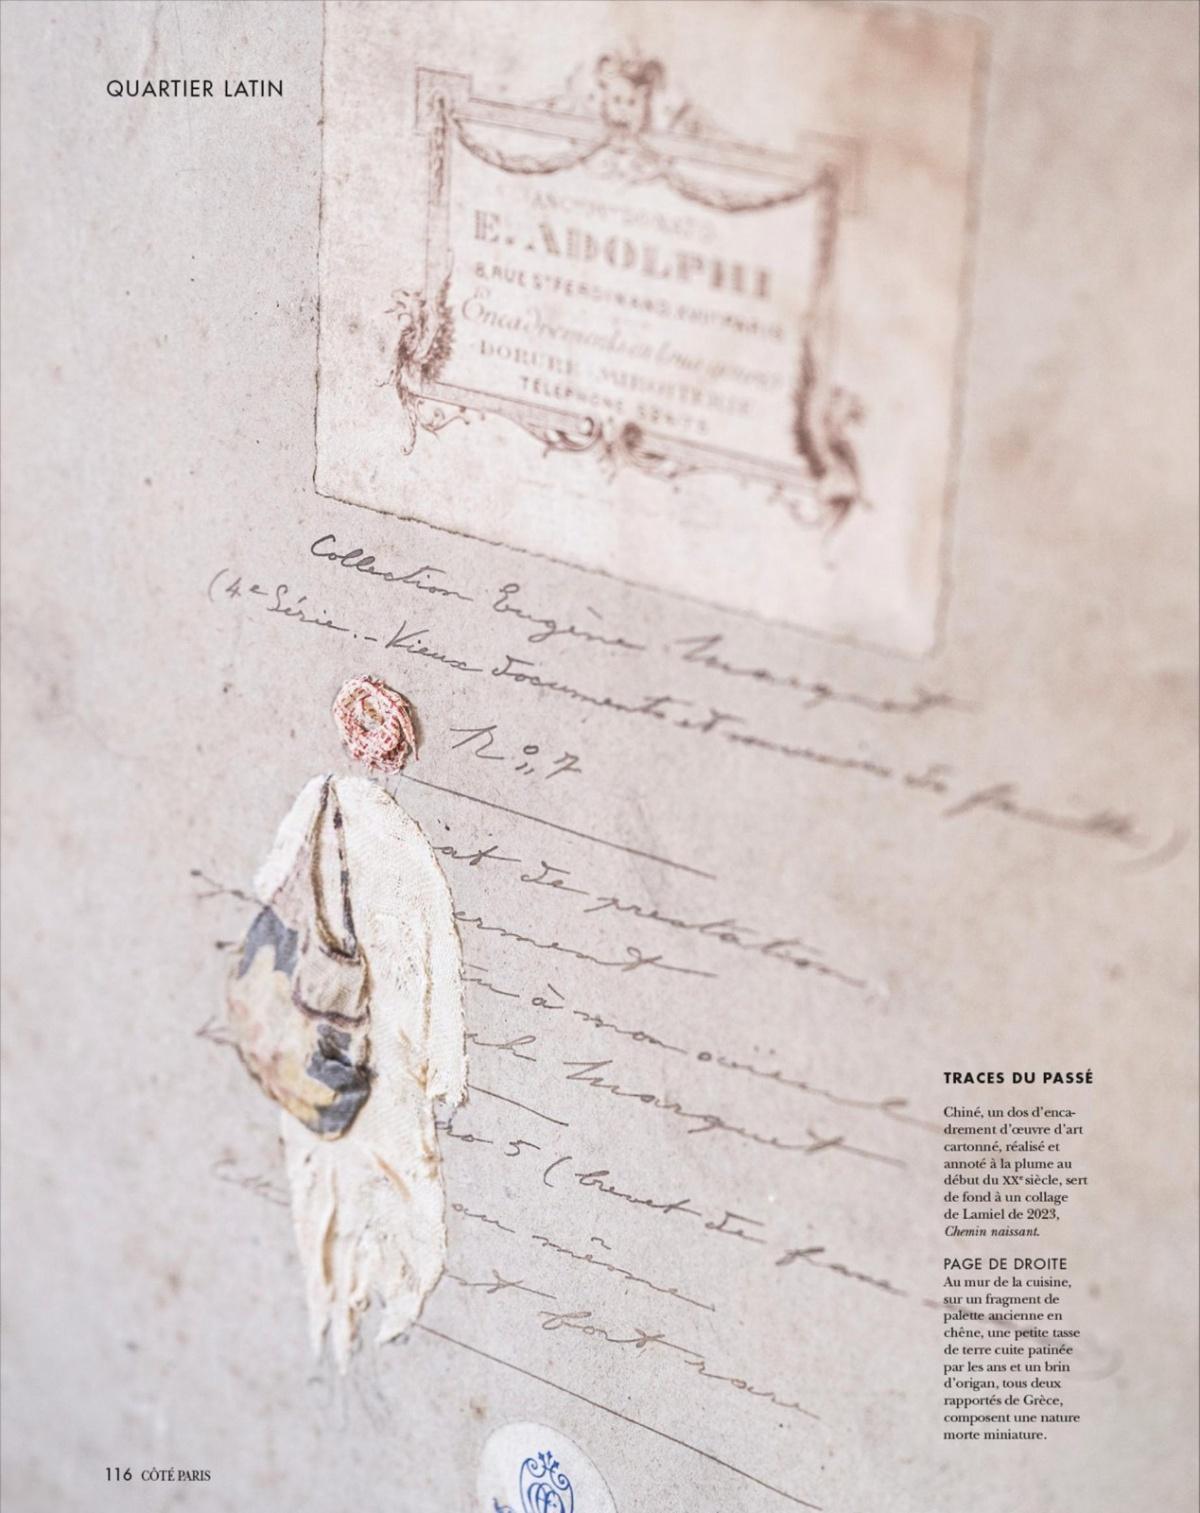 QUARTIER LATIN
E. ADOLPHI
8, RUE ST FERDINAND, XVIIe PARIS
Encadrements en tous genres
DORURE - MIROITERIE
TÉLÉPHONE
Collection Eugène Marquet
(4e Série. - Vieux documents et souvenirs de famille
No 7
at de prestation
erment
à mon aïeul
Marquet
ro 5 (brevet de
au même
st fort rare
TRACES DU PASSÉ
Chiné, un dos d'enca-
drement d'œuvre d'art
cartonné, réalisé et
annoté à la plume au
début du XXe siècle, sert
de fond à un collage
de Lamiel de 2023,
Chemin naissant.
PAGE DE DROITE
Au mur de la cuisine,
sur un fragment de
palette ancienne en
chêne, une petite tasse
de terre cuite patinée
par les ans et un brin
d'origan, tous deux
rapportés de Grèce,
composent une nature
morte miniature.
116 CÔTÉ PARIS